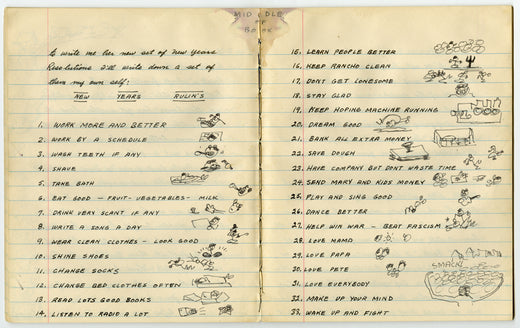 MIDDLE
OF
BOOK
to write me her new set of New Years
Resolutions I'll write down a set of
them my own self:
NEW YEARS RULIN'S
1. WORK MORE AND BETTER
2. WORK BY A SCHEDULE
3. WASH TEETH IF ANY
4. SHAVE
5. TAKE BATH
6. EAT GOOD — FRUIT - VEGETABLES - MILK
7. DRINK VERY SCANT IF ANY
8. WRITE A SONG A DAY
9. WEAR CLEAN CLOTHES - LOOK GOOD
10. SHINE SHOES
11. CHANGE SOCKS
12. CHANGE BED CLOTHES OFTEN
13. READ LOTS GOOD BOOKS
14. LISTEN TO RADIO A LOT
15. LEARN PEOPLE BETTER
16. KEEP RANCHO CLEAN
17. DONT GET LONESOME
18. STAY GLAD
19. KEEP HOPING MACHINE RUNNING
20. DREAM GOOD
21. BANK ALL EXTRA MONEY
22. SAVE DOUGH
23. HAVE COMPANY BUT DONT WASTE TIME
24. SEND MARY AND KIDS MONEY
25. PLAY AND SING GOOD
26. DANCE BETTER
27. HELP WIN WAR - BEAT FASCISM
28. LOVE MAMA
29. LOVE PAPA
30. LOVE PETE
SMACK
31. LOVE EVERYBODY
32. MAKE UP YOUR MIND
33. WAKE UP AND FIGHT